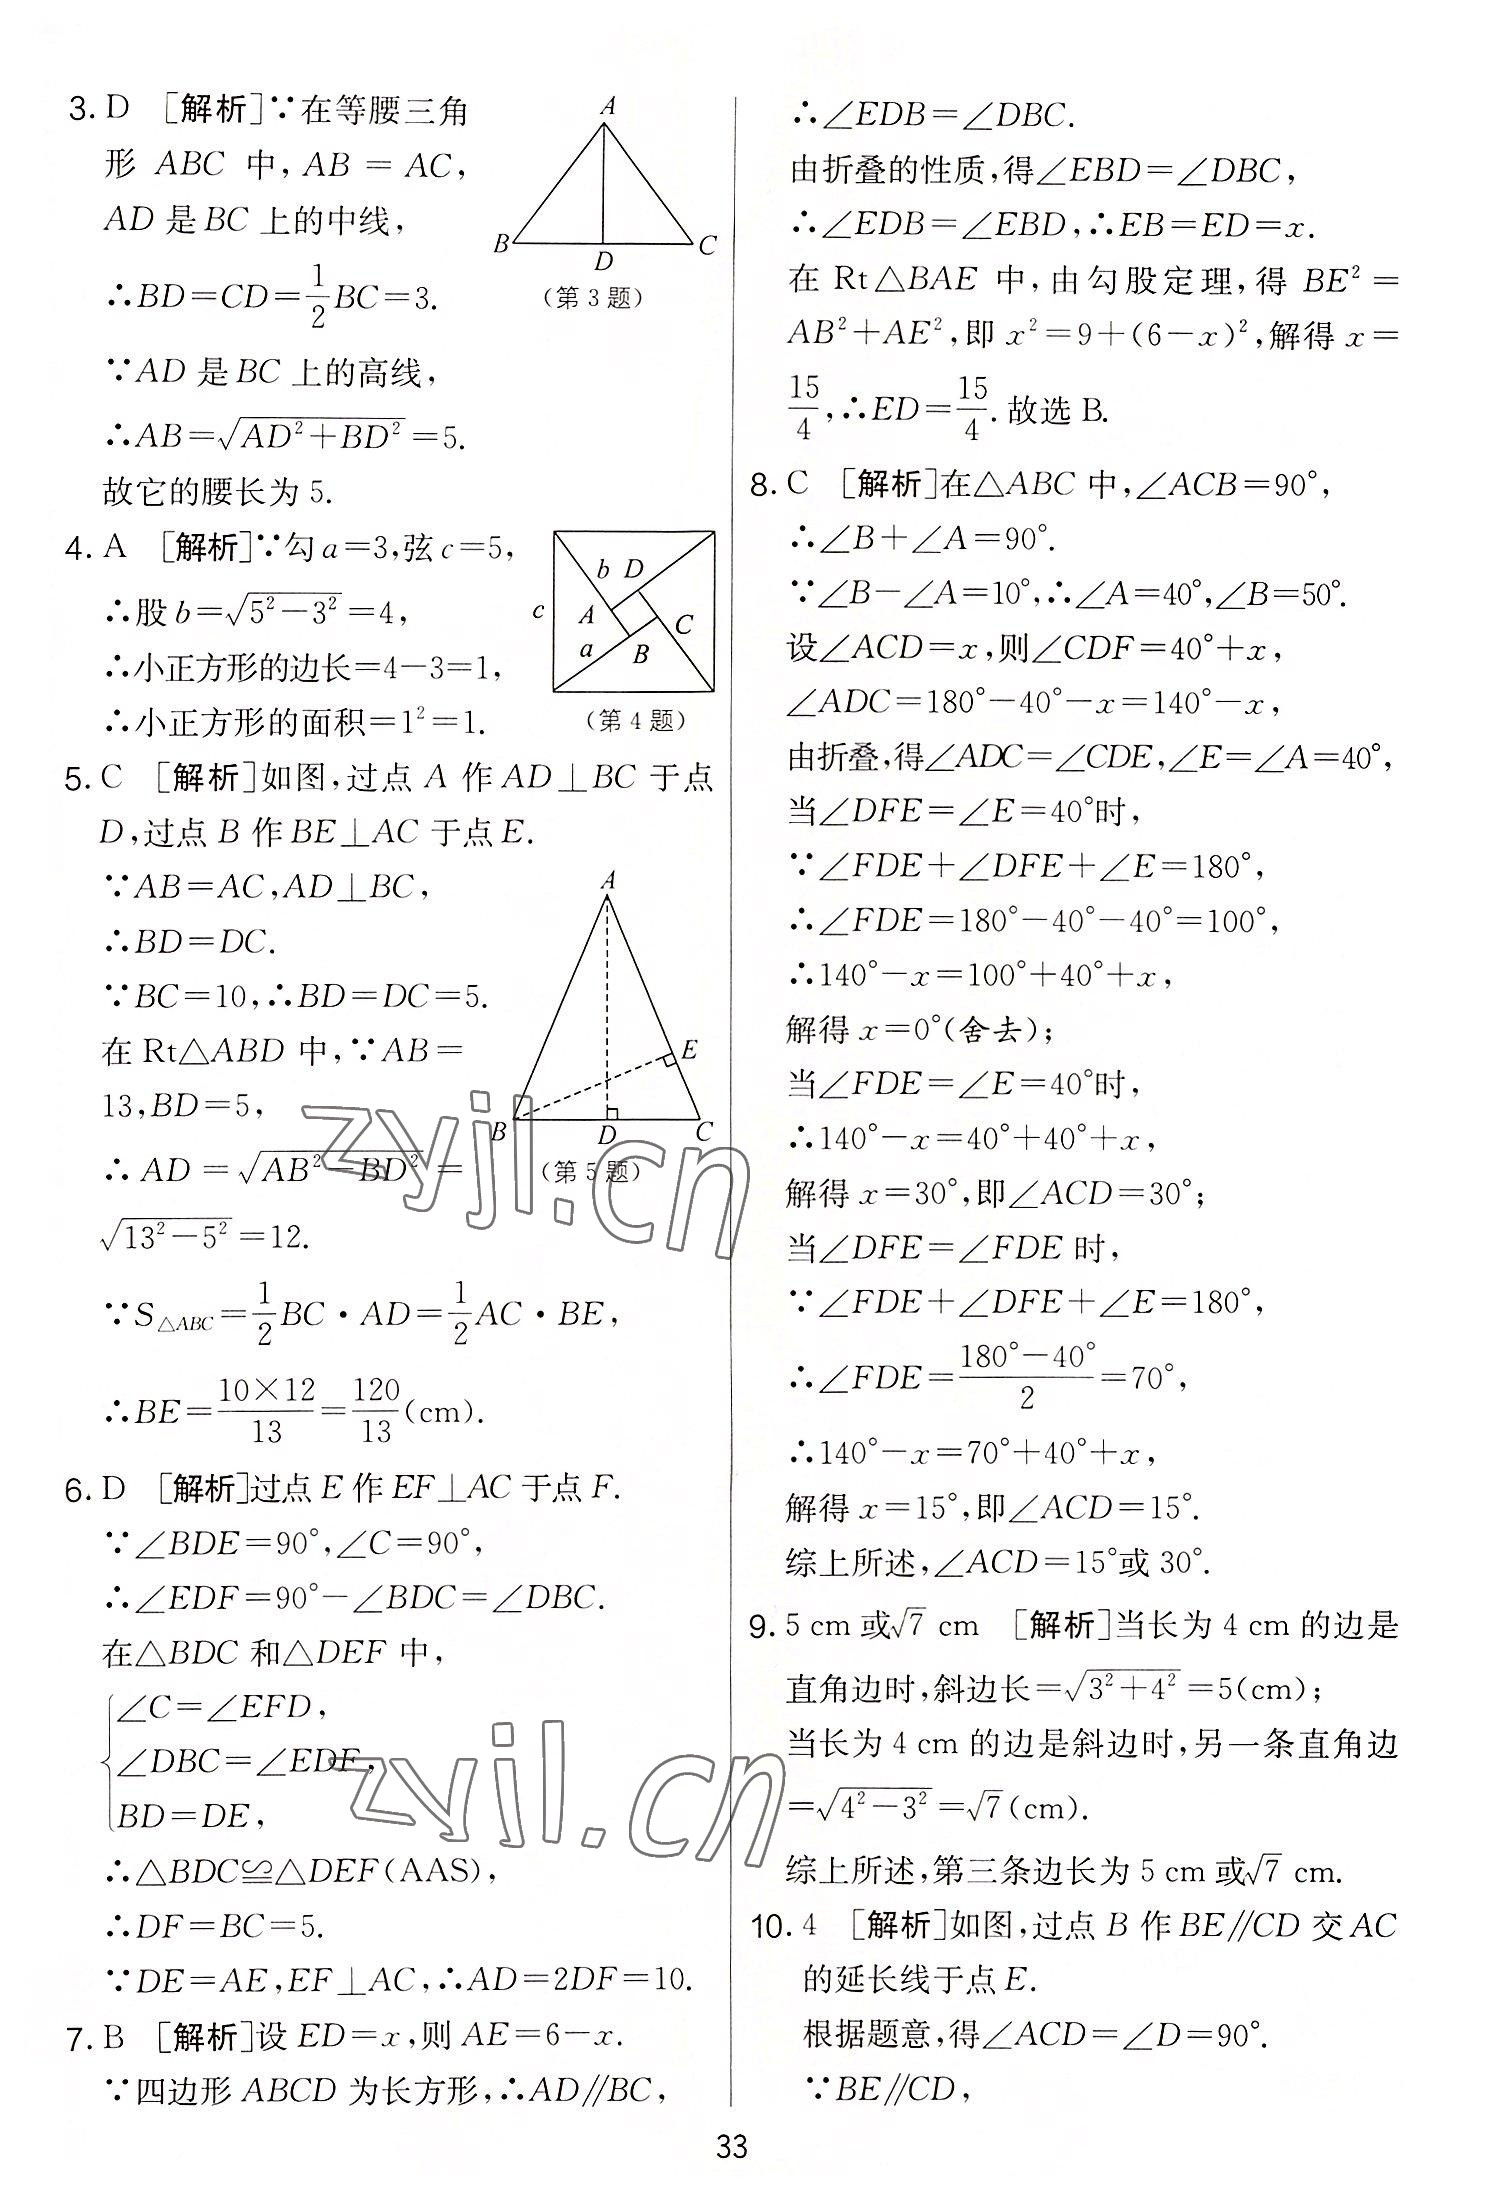 3. D [解析]∵在等腰三角
形 ABC 中, AB = AC,
AD 是 BC 上的中线,
∴BD=CD=1/2BC=3.
∵AD 是 BC 上的高线,
∴AB=√(AD²+BD²)=5.
故它的腰长为 5.
A
B
D
C
(第 3 题)
4. A [解析]∵勾 a=3,弦 c=5,
∴股 b=√(5²-3²)=4,
∴小正方形的边长=4-3=1,
∴小正方形的面积=1²=1.
b D
c
A
C
a
B
(第 4 题)
5. C [解析]如图,过点 A 作 AD⊥BC 于点
D,过点 B 作 BE⊥AC 于点 E.
∵AB=AC,AD⊥BC,
∴BD=DC.
∵BC=10,∴BD=DC=5.
在 Rt△ABD 中,∵AB=
13,BD=5,
∴AD=√(AB²-BD²)=
√(13²-5²)=12.
A
E
B
D
C
(第 5 题)
∵S△ABC=1/2BC·AD=1/2AC·BE,
∴BE=(10×12)/13=120/13(cm).
6. D [解析]过点 E 作 EF⊥AC 于点 F.
∵∠BDE=90°,∠C=90°,
∴∠EDF=90°-∠BDC=∠DBC.
在△BDC 和△DEF 中,
∠C=∠EFD,
∠DBC=∠EDF,
BD=DE,
∴△BDC≌△DEF(AAS),
∴DF=BC=5.
∵DE=AE,EF⊥AC,∴AD=2DF=10.
7. B [解析]设 ED=x,则 AE=6-x.
∵四边形 ABCD 为长方形,∴AD∥BC,
∴∠EDB=∠DBC.
由折叠的性质,得∠EBD=∠DBC,
∴∠EDB=∠EBD,∴EB=ED=x.
在 Rt△BAE 中,由勾股定理,得 BE²=
AB²+AE²,即 x²=9+(6-x)²,解得 x=
15/4,∴ED=15/4.故选 B.
8. C [解析]在△ABC 中,∠ACB=90°,
∴∠B+∠A=90°.
∵∠B-∠A=10°,∴∠A=40°,∠B=50°.
设∠ACD=x,则∠CDF=40°+x,
∠ADC=180°-40°-x=140°-x,
由折叠,得∠ADC=∠CDE,∠E=∠A=40°,
当∠DFE=∠E=40°时,
∵∠FDE+∠DFE+∠E=180°,
∴∠FDE=180°-40°-40°=100°,
∴140°-x=100°+40°+x,
解得 x=0°(舍去);
当∠FDE=∠E=40°时,
∴140°-x=40°+40°+x,
解得 x=30°,即∠ACD=30°;
当∠DFE=∠FDE 时,
∵∠FDE+∠DFE+∠E=180°,
∴∠FDE=(180°-40°)/2=70°,
∴140°-x=70°+40°+x,
解得 x=15°,即∠ACD=15°.
综上所述,∠ACD=15°或 30°.
9. 5 cm 或√7 cm [解析]当长为 4 cm 的边是
直角边时,斜边长=√(3²+4²)=5(cm);
当长为 4 cm 的边是斜边时,另一条直角边
=√(4²-3²)=√7(cm).
综上所述,第三条边长为 5 cm 或√7 cm.
10. 4 [解析]如图,过点 B 作 BE∥CD 交 AC
的延长线于点 E.
根据题意,得∠ACD=∠D=90°.
∵BE∥CD,
33
zyjl.cn
zyjl.cn